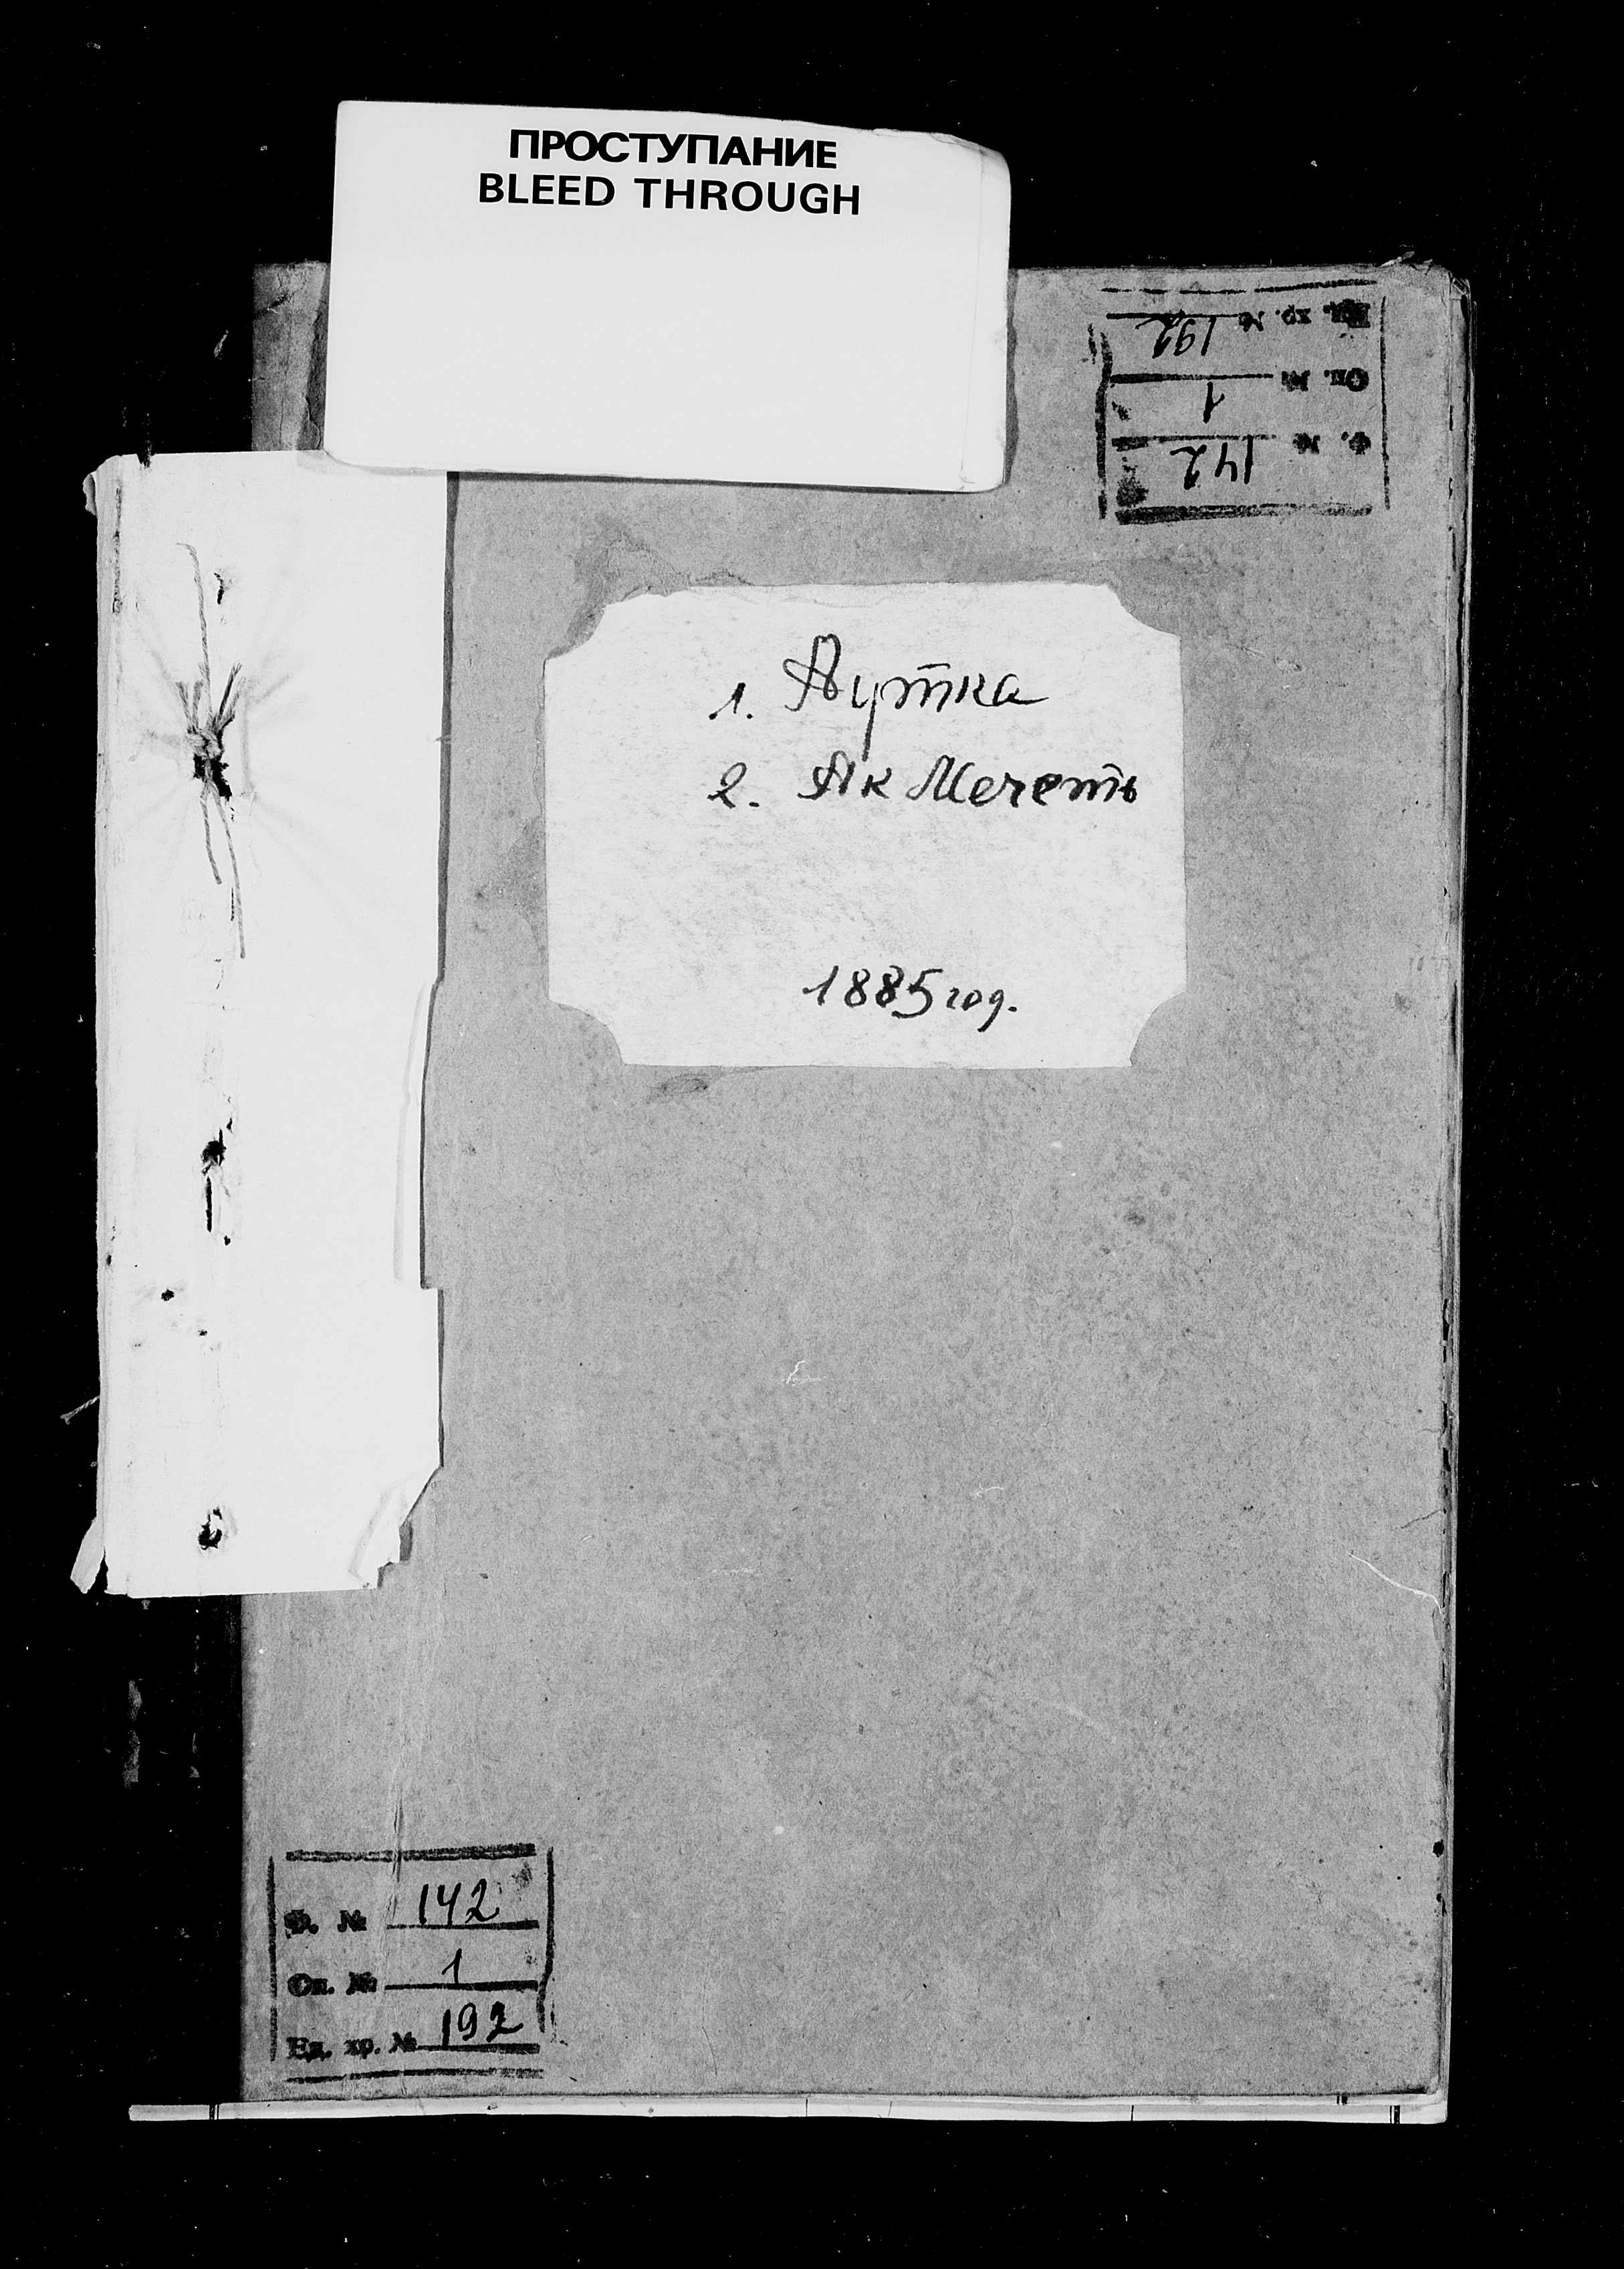 ПРОСТУПАНИЕ
BLEED THROUGH
Ед. хр. № 192
Оп. № 1
Ф. № 142
1. Аутка
2. Ак Мечеть
1885 год.
Ф. № 142
Оп. № 1
Ед. хр. № 192